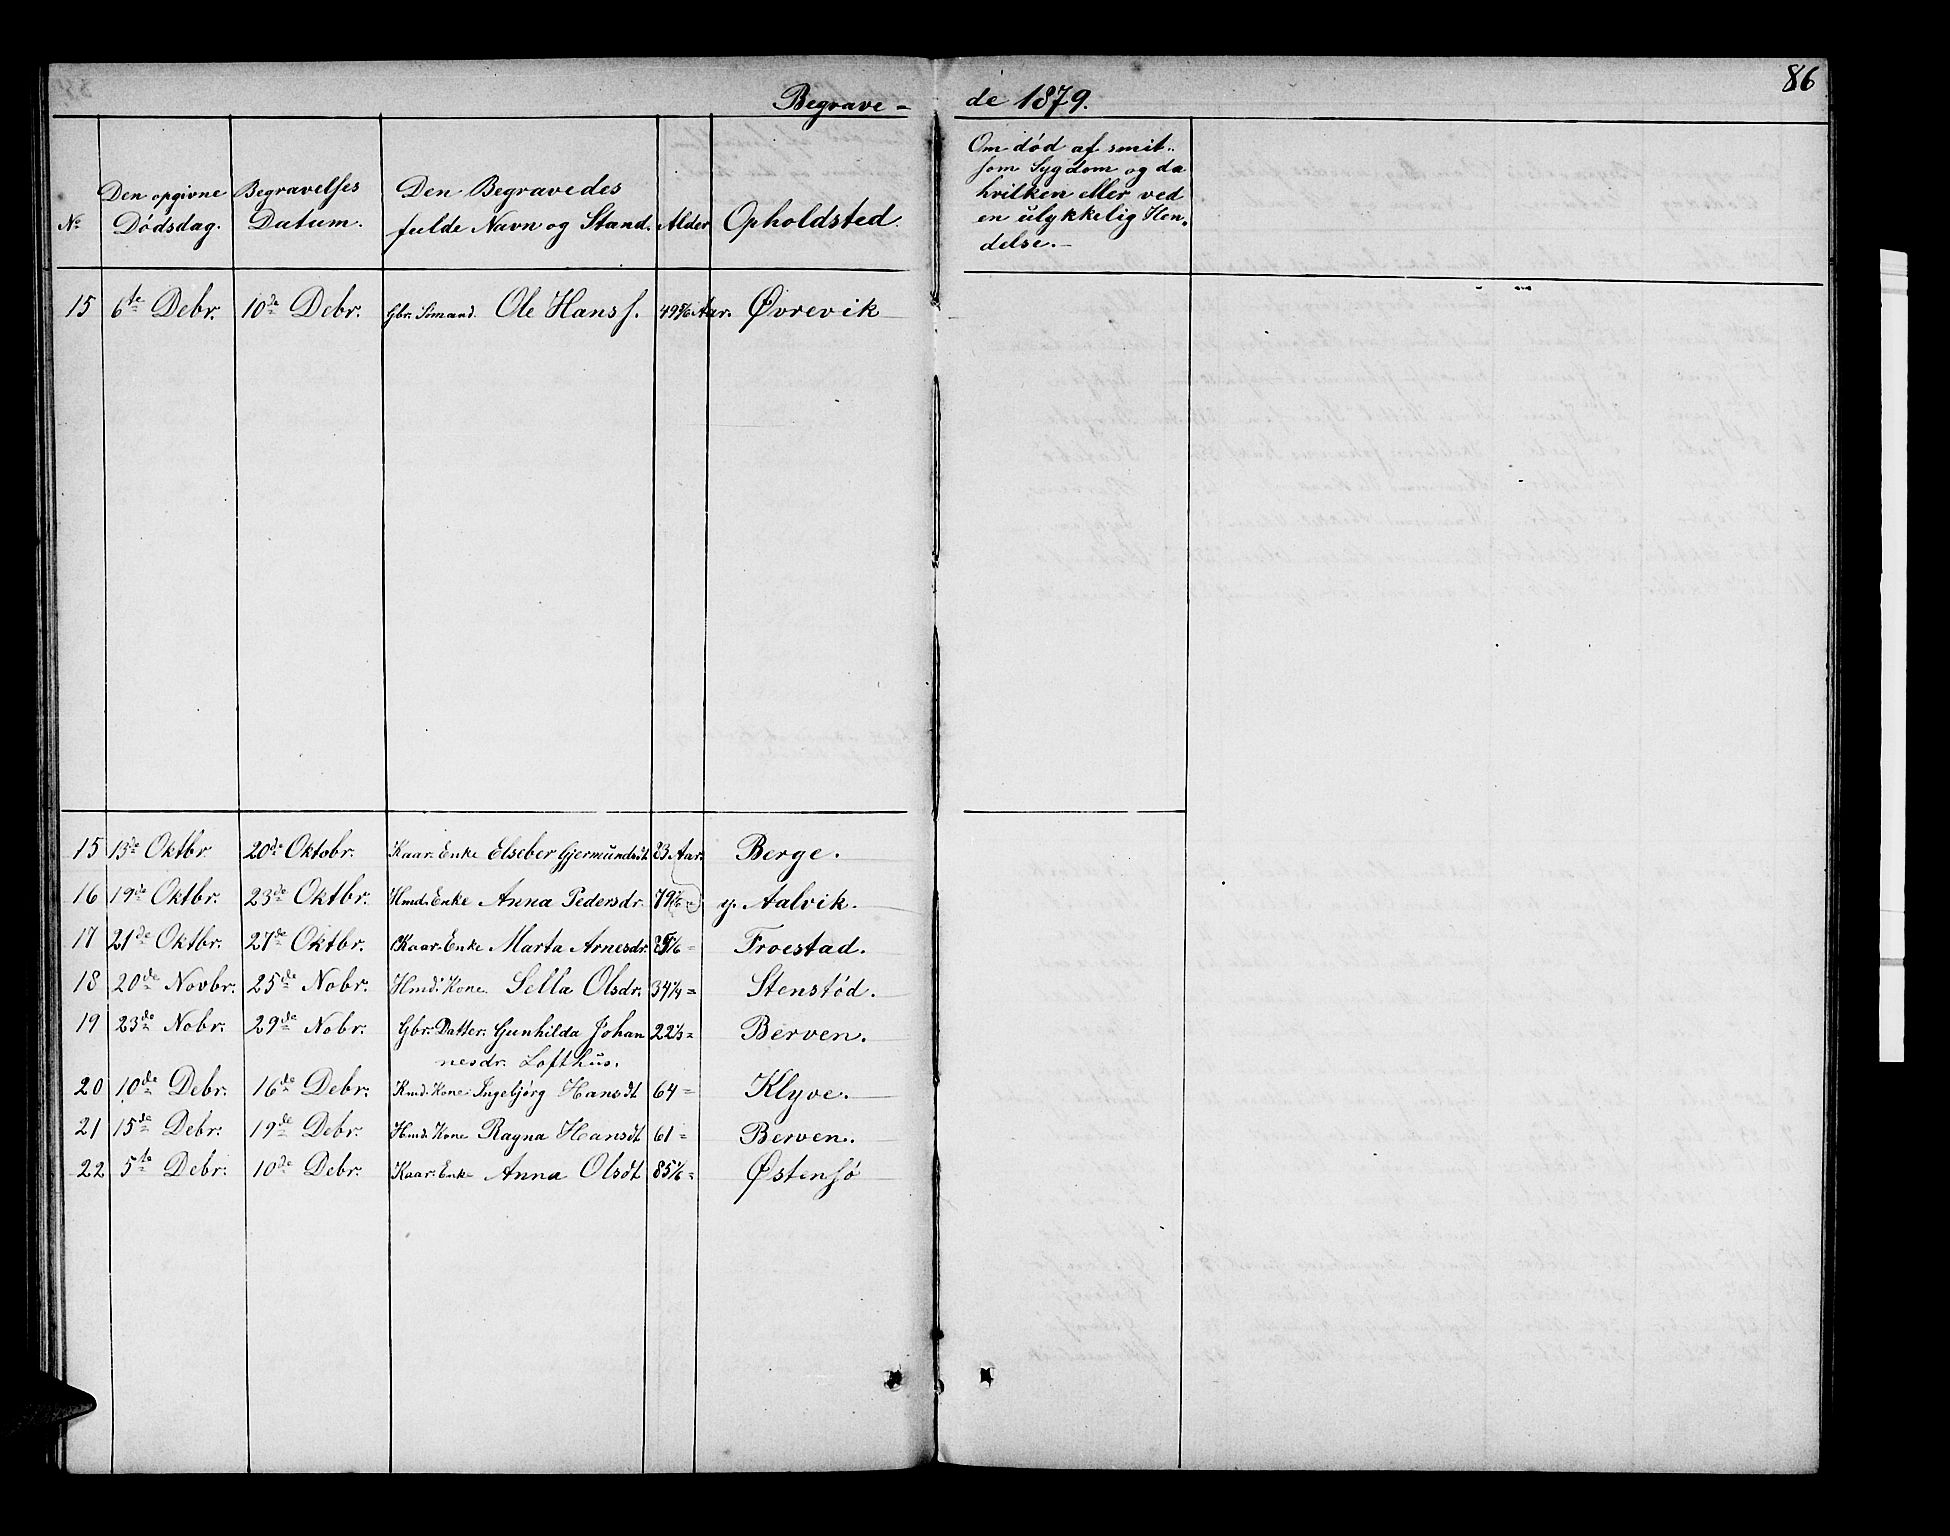 86
Begrave - de 1879.
№ Den opgivne Dödsdag. Begravelses Datum. Den Begravedes fulde Navn og Stand. Alder Opholdsted. Om död af smit.. som Sygdom og da hvilken eller ved en ulykkelig Hen. delse.
15 6te Debr. 10de Debr. Gbr. Sömand. Ole Hanss. 49 Aar. Øvrevik
15 15de Oktbr 20de Oktobr. Kaar. Enke Elseber Gjermundsdt 83 Aar. Berge.
16 19de Oktbr. 23de Oktbr. Hmd. Enke Anna Pedersdr. 79 y. Aalvik.
17 21de Oktbr. 27de Oktbr. Kaar. Enke Marta Arnesdr. Froestad.
18 20de Novbr. 25de Nobr. Hmd. Kone. Sella Olsdr. 34¼ = Stenstöd.
19 23de Nobr. 29de Nobr. Gbr. Datter. Gunhilda Johan 22⅓ = Berven.
nesdr. Lofthus.
20 10de Debr. 16de Debr. Kmd. Kone Ingebjörg Hansdt 64 = Klyve.
21 15de Debr. 19de Debr. Hmd. Kone Ragna Hansdt 61 = Berven.
22 5te Debr. 10de Debr. Kaar. Enke Anna Olsdt 85⅙ = Østensö